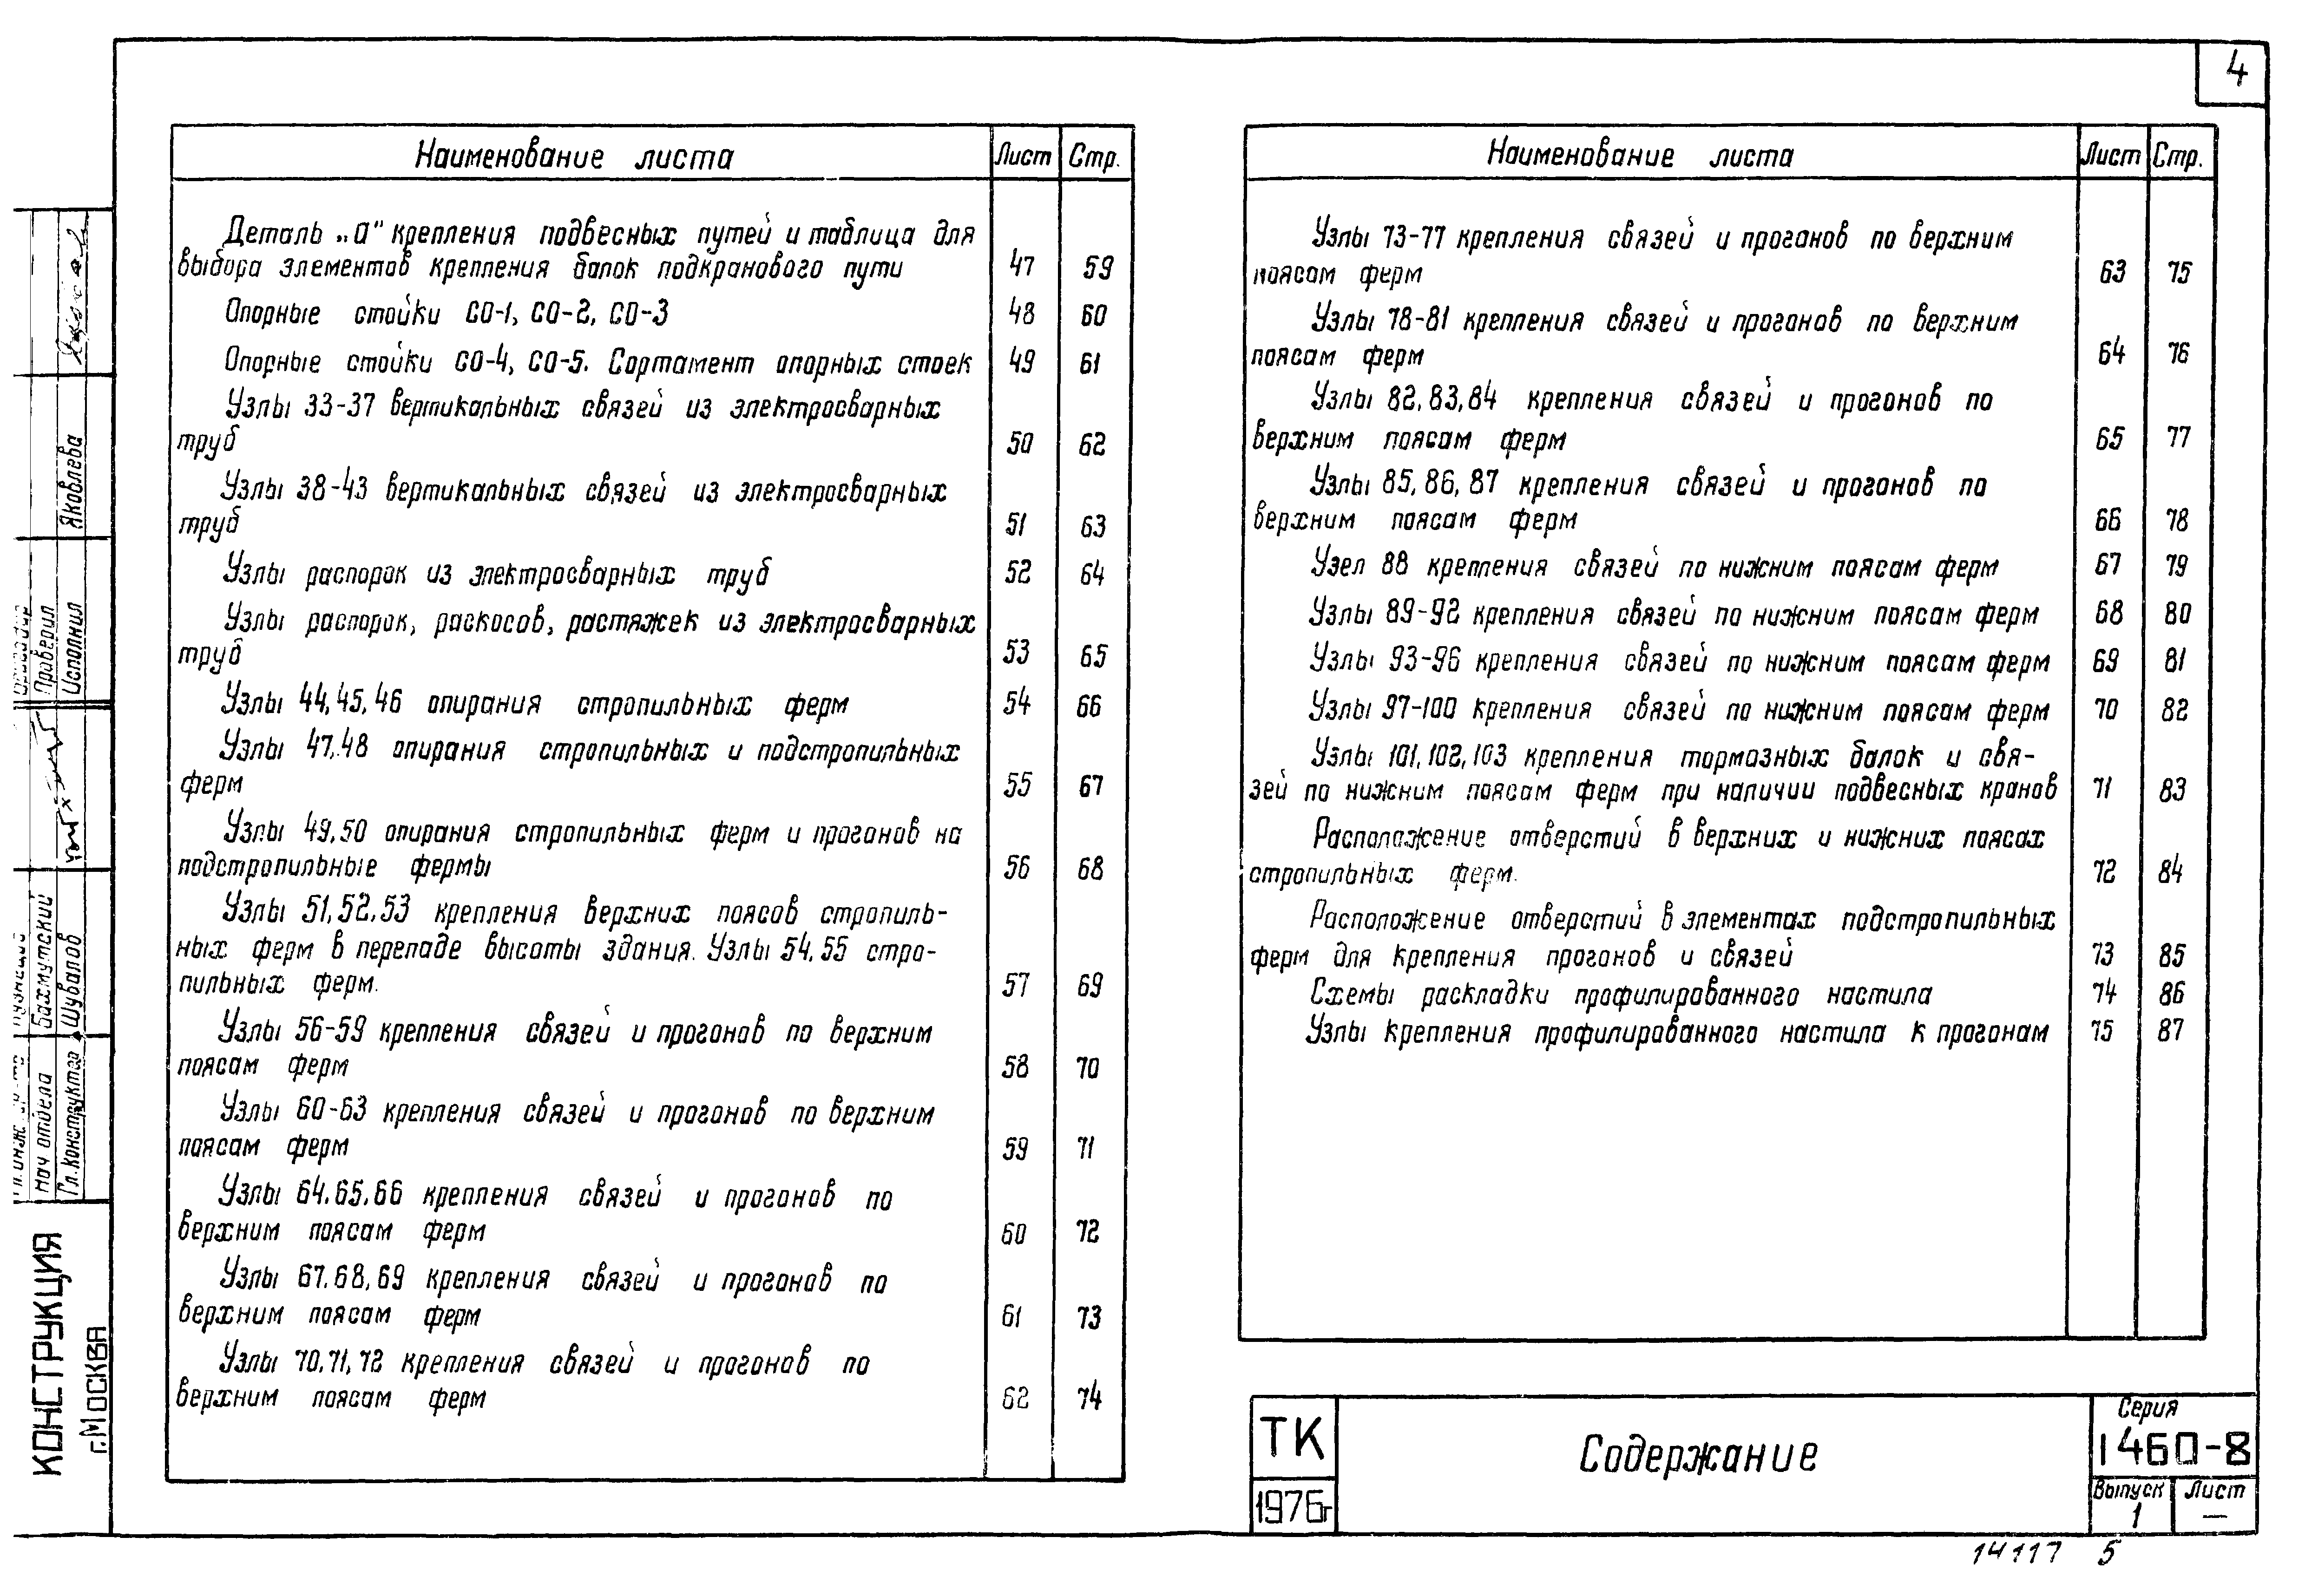 4
Наименование листа Лист Стр.
Деталь „а" крепления подвесных путей и таблица для
выбора элементов крепления балок подкранового пути 47 59
Опорные стойки СО-1, СО-2, СО-3 48 60
Опорные стойки СО-4, СО-5. Сортамент опорных стоек 49 61
Узлы 33-37 вертикальных связей из электросварных
труб 50 62
Узлы 38-43 вертикальных связей из электросварных
труб 51 63
Узлы распорок из электросварных труб 52 64
Узлы распорок, раскосов, растяжек из электросварных
труб 53 65
Узлы 44,45,46 опирания стропильных ферм 54 66
Узлы 47,48 опирания стропильных и подстропильных
ферм 55 67
Узлы 49,50 опирания стропильных ферм и прогонов на
подстропильные фермы 56 68
Узлы 51,52,53 крепления верхних поясов стропиль-
ных ферм в перепаде высоты здания. Узлы 54,55 стро-
пильных ферм. 57 69
Узлы 56-59 крепления связей и прогонов по верхним
поясам ферм 58 70
Узлы 60-63 крепления связей и прогонов по верхним
поясам ферм 59 71
Узлы 64,65,66 крепления связей и прогонов по
верхним поясам ферм 60 72
Узлы 67,68,69 крепления связей и прогонов по
верхним поясам ферм 61 73
Узлы 70,71,72 крепления связей и прогонов по
верхним поясам ферм 62 74
Наименование листа Лист Стр.
Узлы 73-77 крепления связей и прогонов по верхним
поясам ферм 63 75
Узлы 78-81 крепления связей и прогонов по верхним
поясам ферм 64 76
Узлы 82,83,84 крепления связей и прогонов по
верхним поясам ферм 65 77
Узлы 85,86,87 крепления связей и прогонов по
верхним поясам ферм 66 78
Узел 88 крепления связей по нижним поясам ферм 67 79
Узлы 89-92 крепления связей по нижним поясам ферм 68 80
Узлы 93-96 крепления связей по нижним поясам ферм 69 81
Узлы 97-100 крепления связей по нижним поясам ферм 70 82
Узлы 101,102,103 крепления тормазных балок и свя-
зей по нижним поясам ферм при наличии подвесных кранов 71 83
Расположение отверстий в верхних и нижних поясах
стропильных ферм. 72 84
Расположение отверстий в элементах подстропильных
ферм для крепления прогонов и связей 73 85
Схемы раскладки профилированного настила 74 86
Узлы крепления профилированного настила к прогонам 75 87
ТК
1976г
Содержание
Серия
1460-8
Выпуск Лист
1 —
14117 5
КОНСТРУКЦИЯ
г. Москва
Нач отдела Бахмутский Проверил
Гл. Конструктор Шувалов Исполнил Яковлева